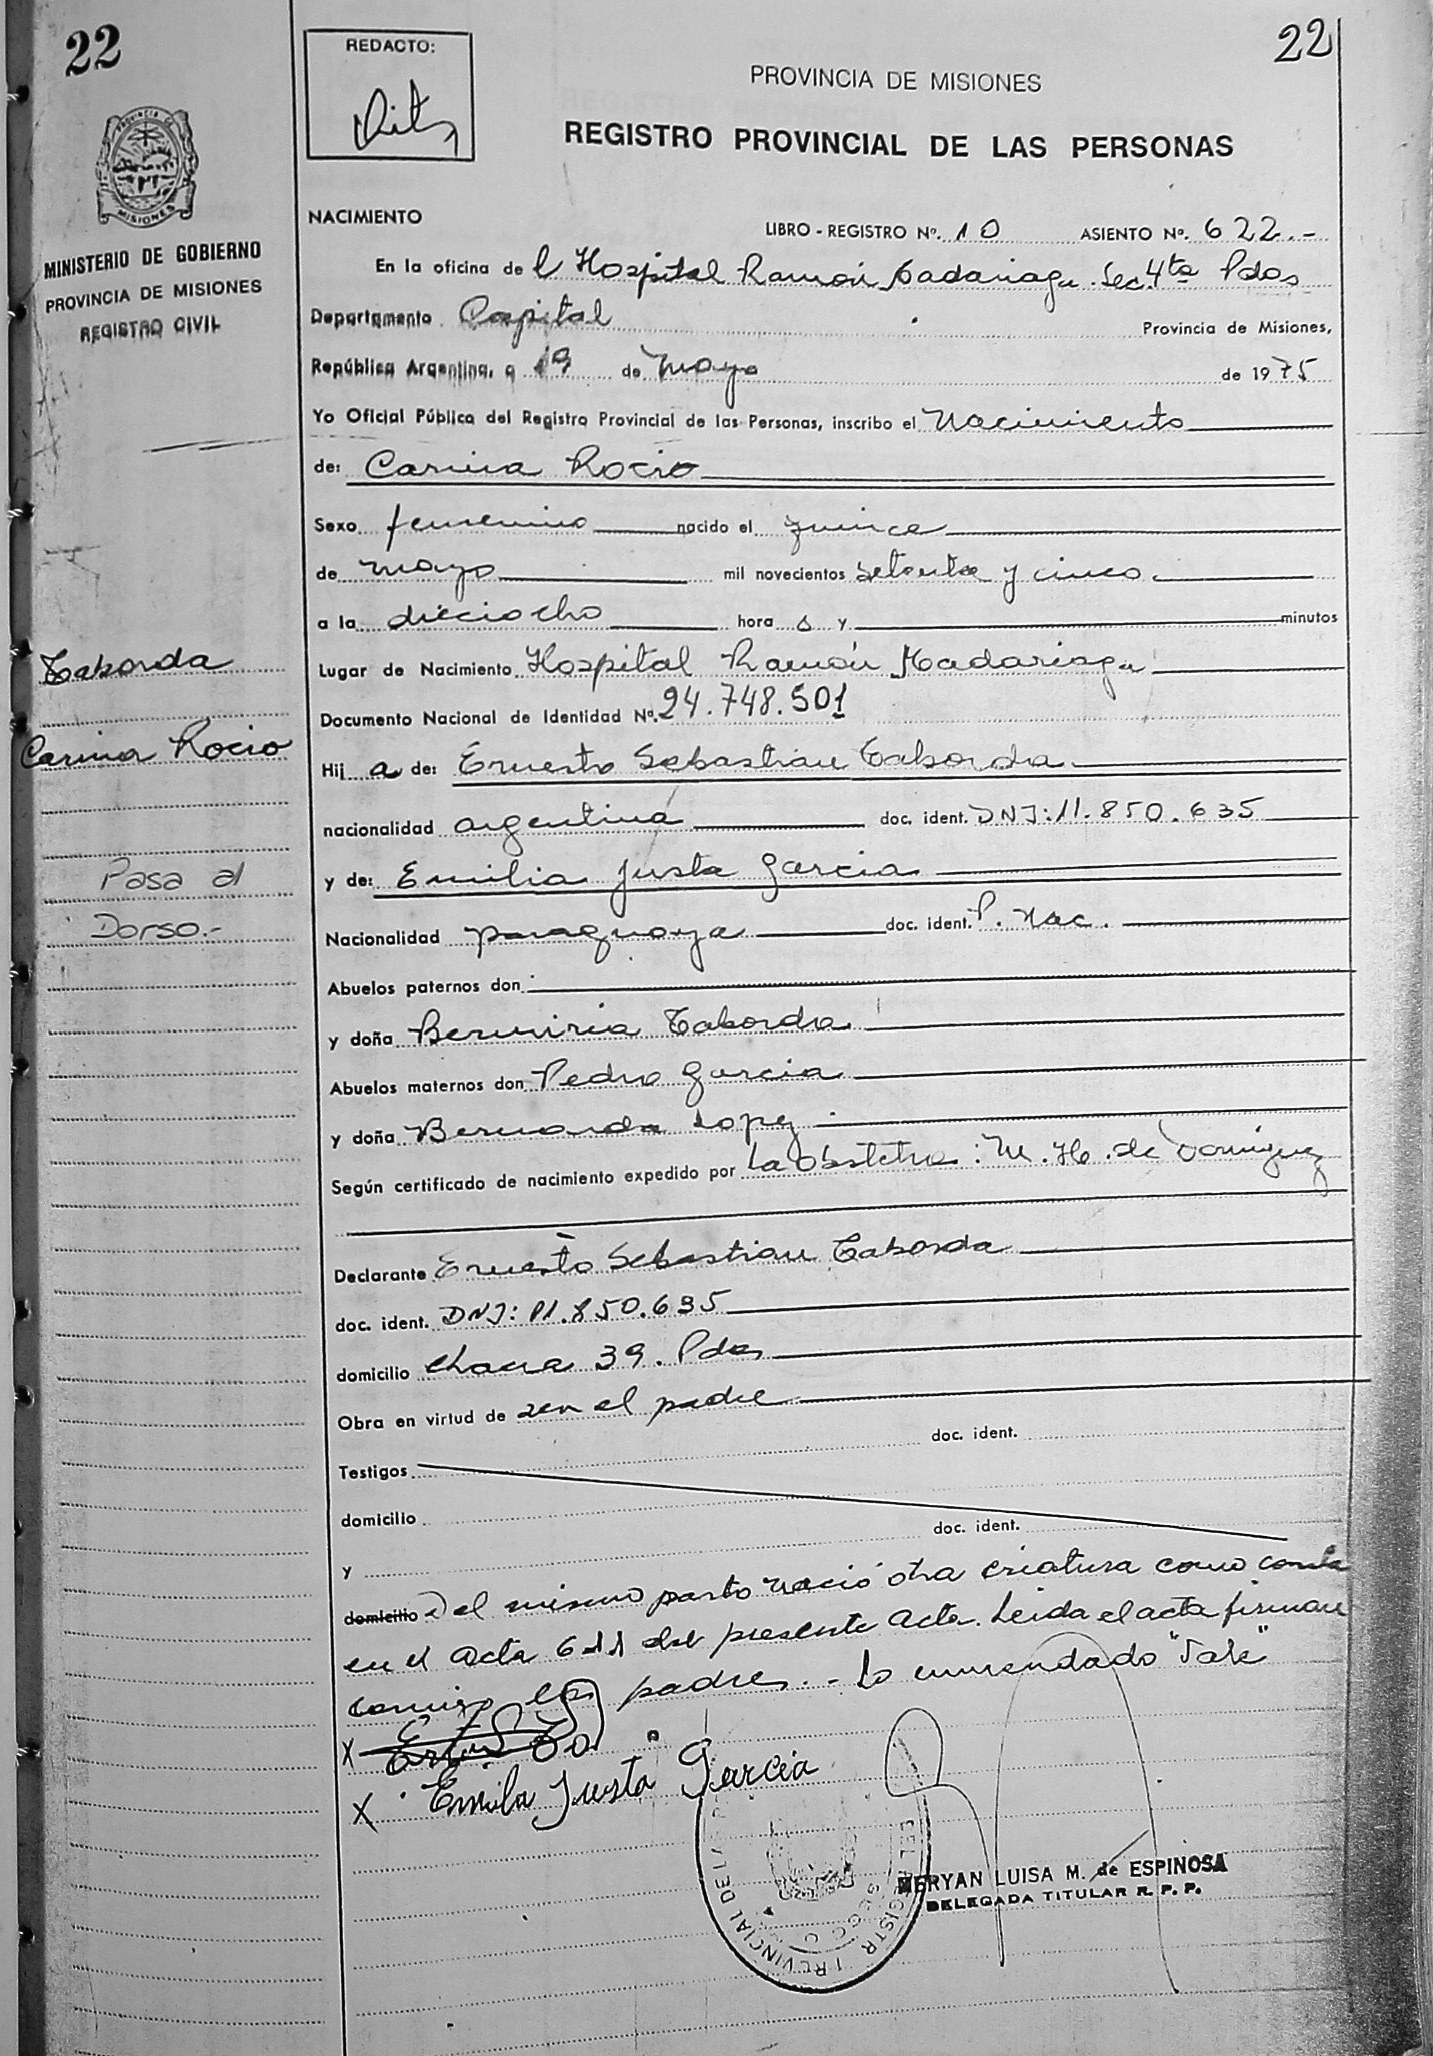 22
22
REDACTO:
PROVINCIA DE MISIONES
REGISTRO PROVINCIAL DE LAS PERSONAS
PROVINCIA DE
MISIONES
MINISTERIO DE GOBIERNO
PROVINCIA DE MISIONES
REGISTRO CIVIL
NACIMIENTO
LIBRO - REGISTRO Nº. 10 ASIENTO Nº. 622.-
En la oficina de l Hospital Ramón Madariaga. Sec. 4ta Pdas
Departamento Capital Provincia de Misiones,
República Argentina, a 19 de Mayo de 1975
Yo Oficial Público del Registro Provincial de las Personas, inscribo el Nacimiento
de: Carina Rocio
Sexo femenino nacido el quince
de mayo mil novecientos setenta y cinco.
a la dieciocho hora s y minutos
Taborda
Lugar de Nacimiento Hospital Ramón Madariaga
Documento Nacional de Identidad Nº. 24.748.501
Carina Rocio
Hij a de: Ernesto Sebastian Taborda
nacionalidad argentina doc. ident. DNI: 11.850.635
Pasa al
y de: Emilia Justa Garcia
Dorso.-
Nacionalidad paraguaya doc. ident. P. Nac.
Abuelos paternos don
y doña Taborda
Abuelos maternos don Pedro Garcia
y doña Bernarda Lopez
Según certificado de nacimiento expedido por La Obstetra: M. H. de Dominguez
Declarante Ernesto Sebastian Taborda
doc. ident. DNI: 11.850.635
domicilio Chacra 39. Pdas
Obra en virtud de ser el padre
doc. ident.
Testigos
domicilio
doc. ident.
y
domicilio Del mismo parto nació otra criatura como consta
en el acta 621 del presente acta. Leida el acta firman
conmigo los padres.- Lo enmendado "Vale"
X
X Emila Justa Garcia
MERYAN LUISA M. de ESPINOSA
DELEGADA TITULAR R. P. P.